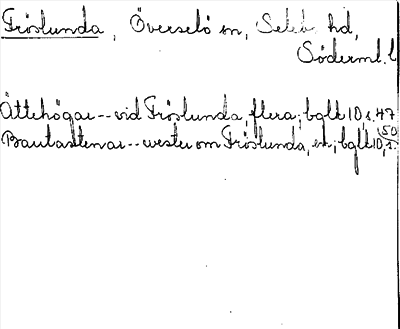 Fröslunda, Överselö sn, Seleb. hd,
Söderml. l
Ättehögar -- vid Fröslunda, flera; bglt 10, s. 47
50
Bautastenar -- vester om Fröslunda, en; bglt 10, s.